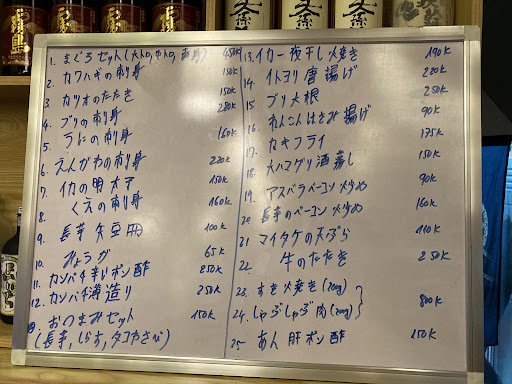 1. まぐろセット(大トロ,中トロ,赤身) 450K
2. カワハギの刺身 150K
3. カツオのたたき 150K
4. ブリの刺身 280K
5. うにの刺身 160K
6. えんがわの刺身 220K
7. イカの明太子 150K
8. くえの刺身 160K
9. 長芋 短冊 100K
10. みょうが 65K
11. カンパチ辛いポン酢 250K
12. カンパチ薄造り 250K
おつまみセット 150K
(長芋,しらす,タコわさび)
13. イカ一夜干し焼き 190K
14. イトヨリ唐揚げ 220K
15. ブリ大根 250K
16. れんこんはさみ揚げ 90K
17. カキフライ 175K
18. 大ハマグリ酒蒸し 150K
19. アスパラベーコン炒め 90K
20. 長芋のベーコン炒め 160K
21. マイタケの天ぷら 110K
22. 牛のたたき 250K
23. すき焼き(200g)
24. しゃぶしゃぶ肉(200g) 800K
25. あん肝ポン酢 250K